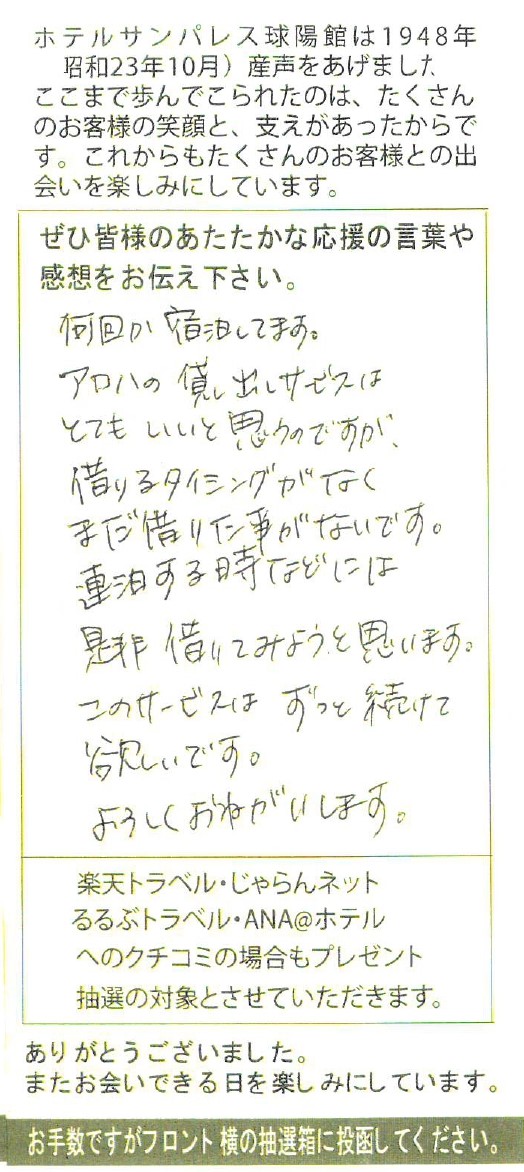 ホテルサンパレス球陽館は1948年
昭和23年10月）産声をあげました
ここまで歩んでこられたのは、たくさん
のお客様の笑顔と、支えがあったからで
す。これからもたくさんのお客様との出
会いを楽しみにしています。
ぜひ皆様のあたたかな応援の言葉や
感想をお伝え下さい。
何回か宿泊してます。
アロハの貸し出しサービスは
とてもいいと思うのですが、
借りるタイミングがなく
まだ借りた事がないです。
連泊する時などには
是非借りてみようと思います。
このサービスはずっと続けて
欲しいです。
よろしくおねがいします。
楽天トラベル・じゃらんネット
るるぶトラベル・ANA@ホテル
へのクチコミの場合もプレゼント
抽選の対象とさせていただきます。
ありがとうございました。
またお会いできる日を楽しみにしています。
お手数ですがフロント横の抽選箱に投函してください。